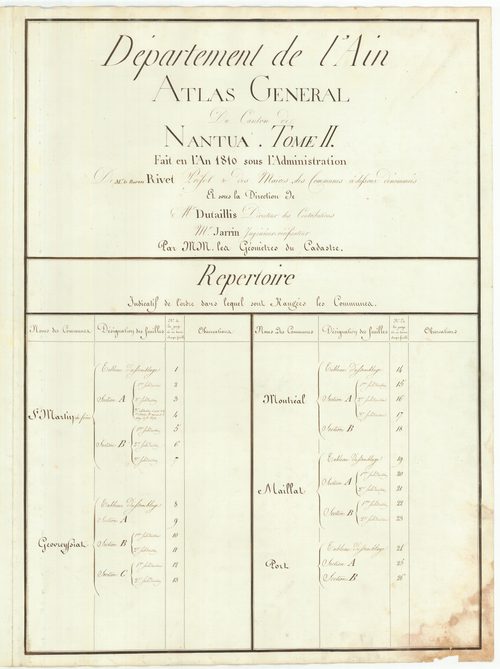 Département de l'Ain
ATLAS GENERAL
Du Canton de
NANTUA. TOME II.
Fait en l'An 1810 sous l'Administration
De Mr. le Baron Rivet Préfet & des Maires des Communes
Et sous la Direction de
Mr. Dutaillis Directeur des Contributions
Mr. Jarrin Ingénieur vérificateur
Par MM. les Géomètres du Cadastre.
Repertoire
Indicatif de l'ordre dans lequel sont Rangées les Communes.
Noms des Communes Désignation des feuilles Observations
St. Martin du frêne
Tableau d'assemblage 1
Section A
1re subdivision 2
2e subdivision 3
4
Section B
1re subdivision 5
2e subdivision 6
3e subdivision 7
Geovreyssiat
Tableau d'assemblage 8
Section A 9
Section B
1re subdivision 10
2e subdivision 11
Section C
1re subdivision 12
2e subdivision 13
Noms des Communes Désignation des feuilles Observations
Montréal
Tableau d'assemblage 14
Section A
1re subdivision 15
2e subdivision 16
3e subdivision 17
Section B 18
Maillat
Tableau d'assemblage 19
Section A
1re subdivision 20
2e subdivision 21
Section B
1re subdivision 22
2e subdivision 23
Port
Tableau d'assemblage 24
Section A 25
Section B 26